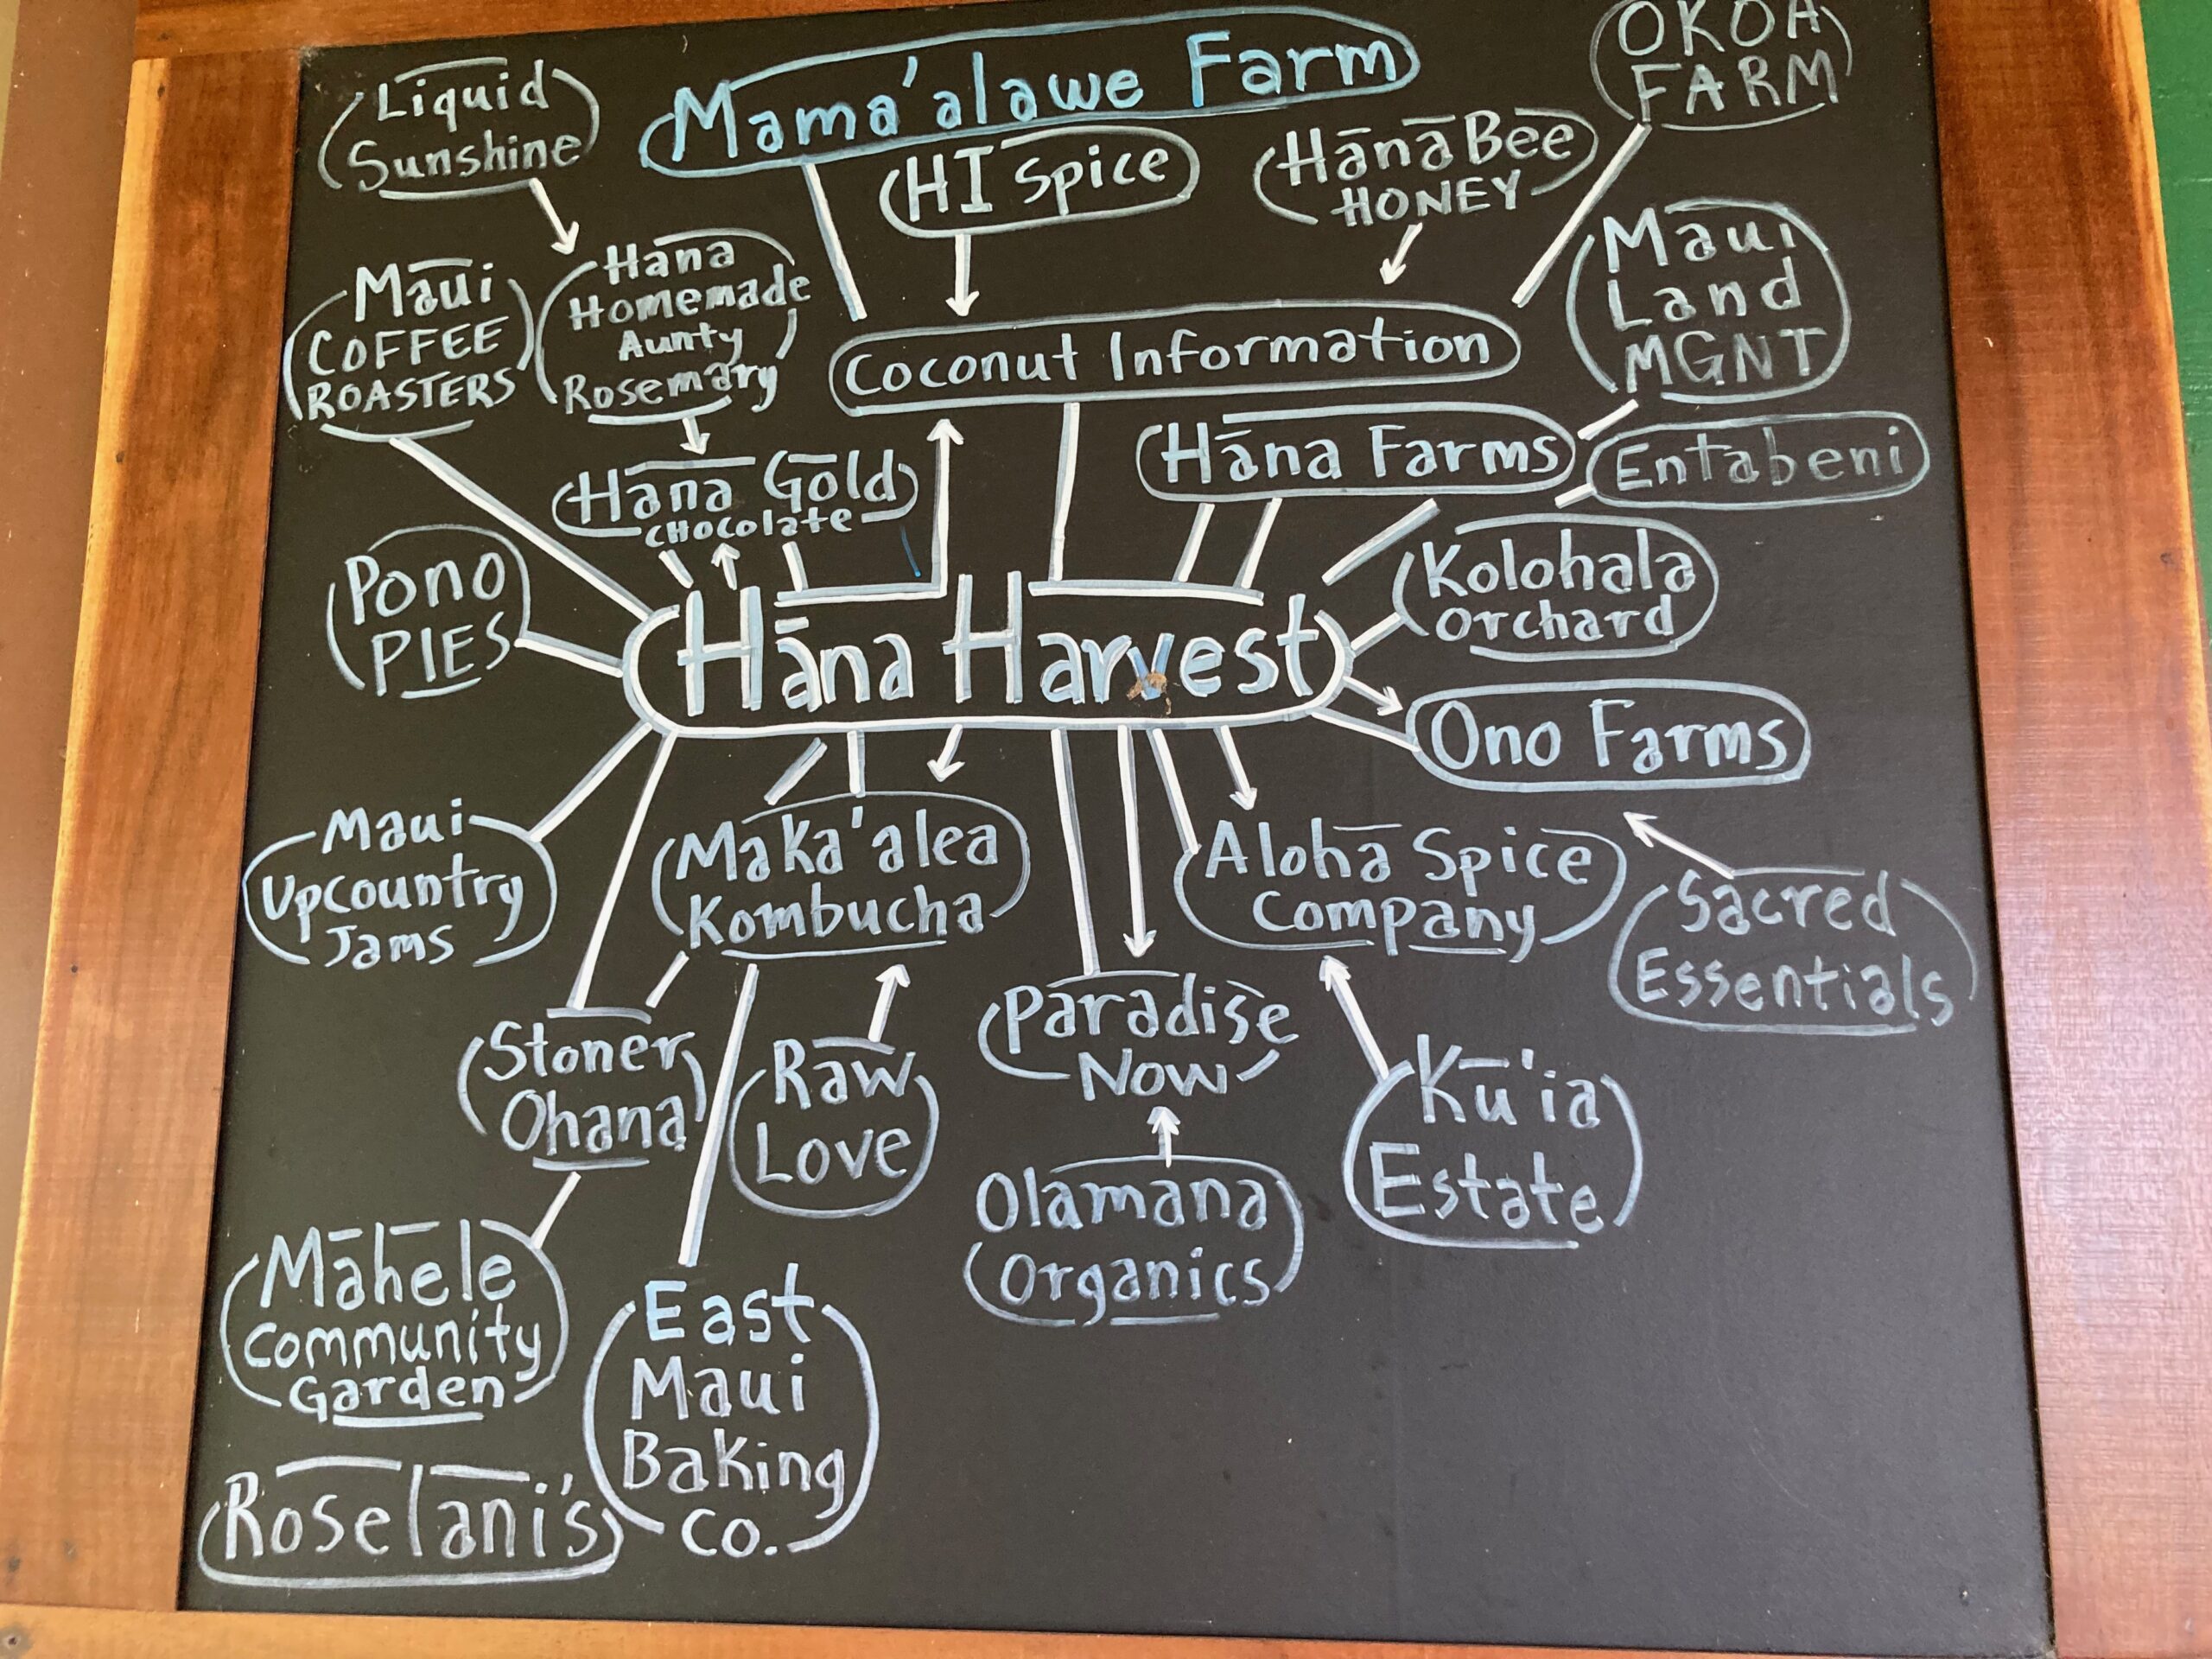 Liquid
Sunshine
Mama'alawe Farm
OKOA
FARM
HI Spice
Hānā Bee
HONEY
Maui
Land
MGNT
Maui
COFFEE
ROASTERS
Hana
Homemade
Aunty
Rosemary
Coconut Information
Hāna Farms
Entabeni
Hana Gold
CHOCOLATE
Kolohala
Orchard
Pono
PIES
Hāna Harvest
Ono Farms
Maui
Upcountry
Jams
Maka'alea
Kombucha
Aloha Spice
Company
Sacred
Essentials
Stoner
Ohana
Raw
Love
Paradise
Now
Kū'ia
Estate
Olamana
Organics
Māhele
Community
Garden
East
Maui
Baking
Co.
Roselani's